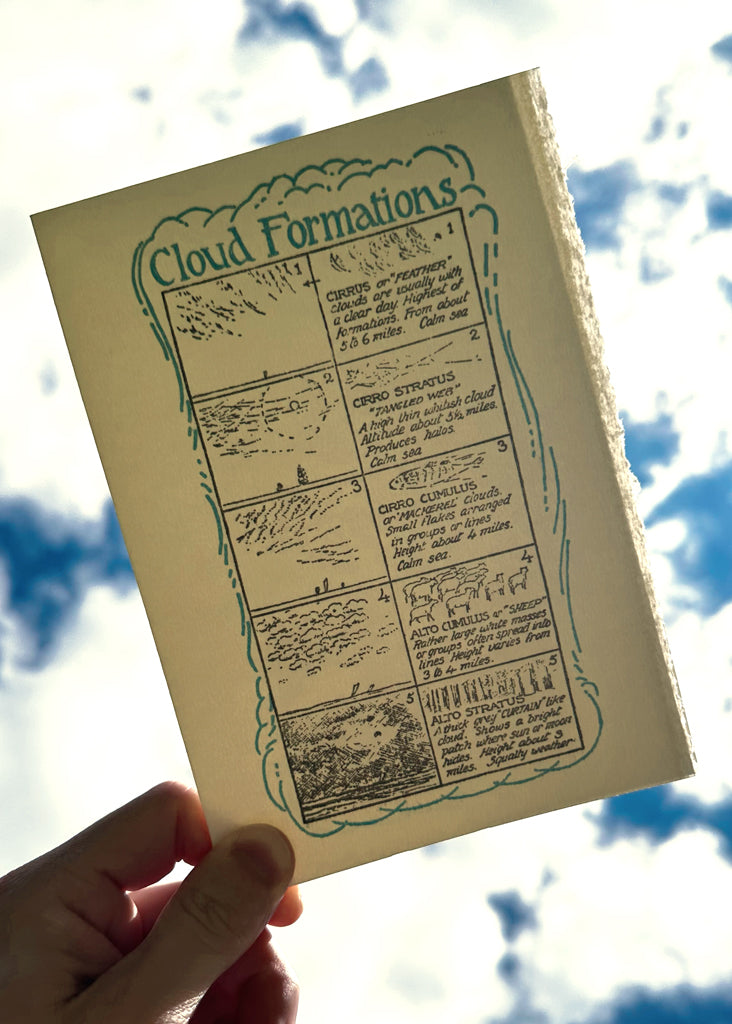 Cloud Formations
1
1
CIRRUS or "FEATHER"
clouds are usually with
a clear day. Highest of
formations. From about
5 to 6 miles. Calm sea
2
2
CIRRO STRATUS
"TANGLED WEB"
A high thin whitish cloud
Altitude about 5½ miles.
Produces halos.
Calm sea
3
3
CIRRO CUMULUS
or 'MACKEREL' clouds.
Small flakes arranged
in groups or lines
Height about 4 miles.
Calm sea.
4
4
ALTO CUMULUS or "SHEEP"
Rather large white masses
or groups often spread into
lines Height varies from
3 to 4 miles.
5
5
ALTO STRATUS
A thick grey 'CURTAIN' like
cloud. Shows a bright
patch where sun or moon
hides. Height about 3
miles. Squally weather.